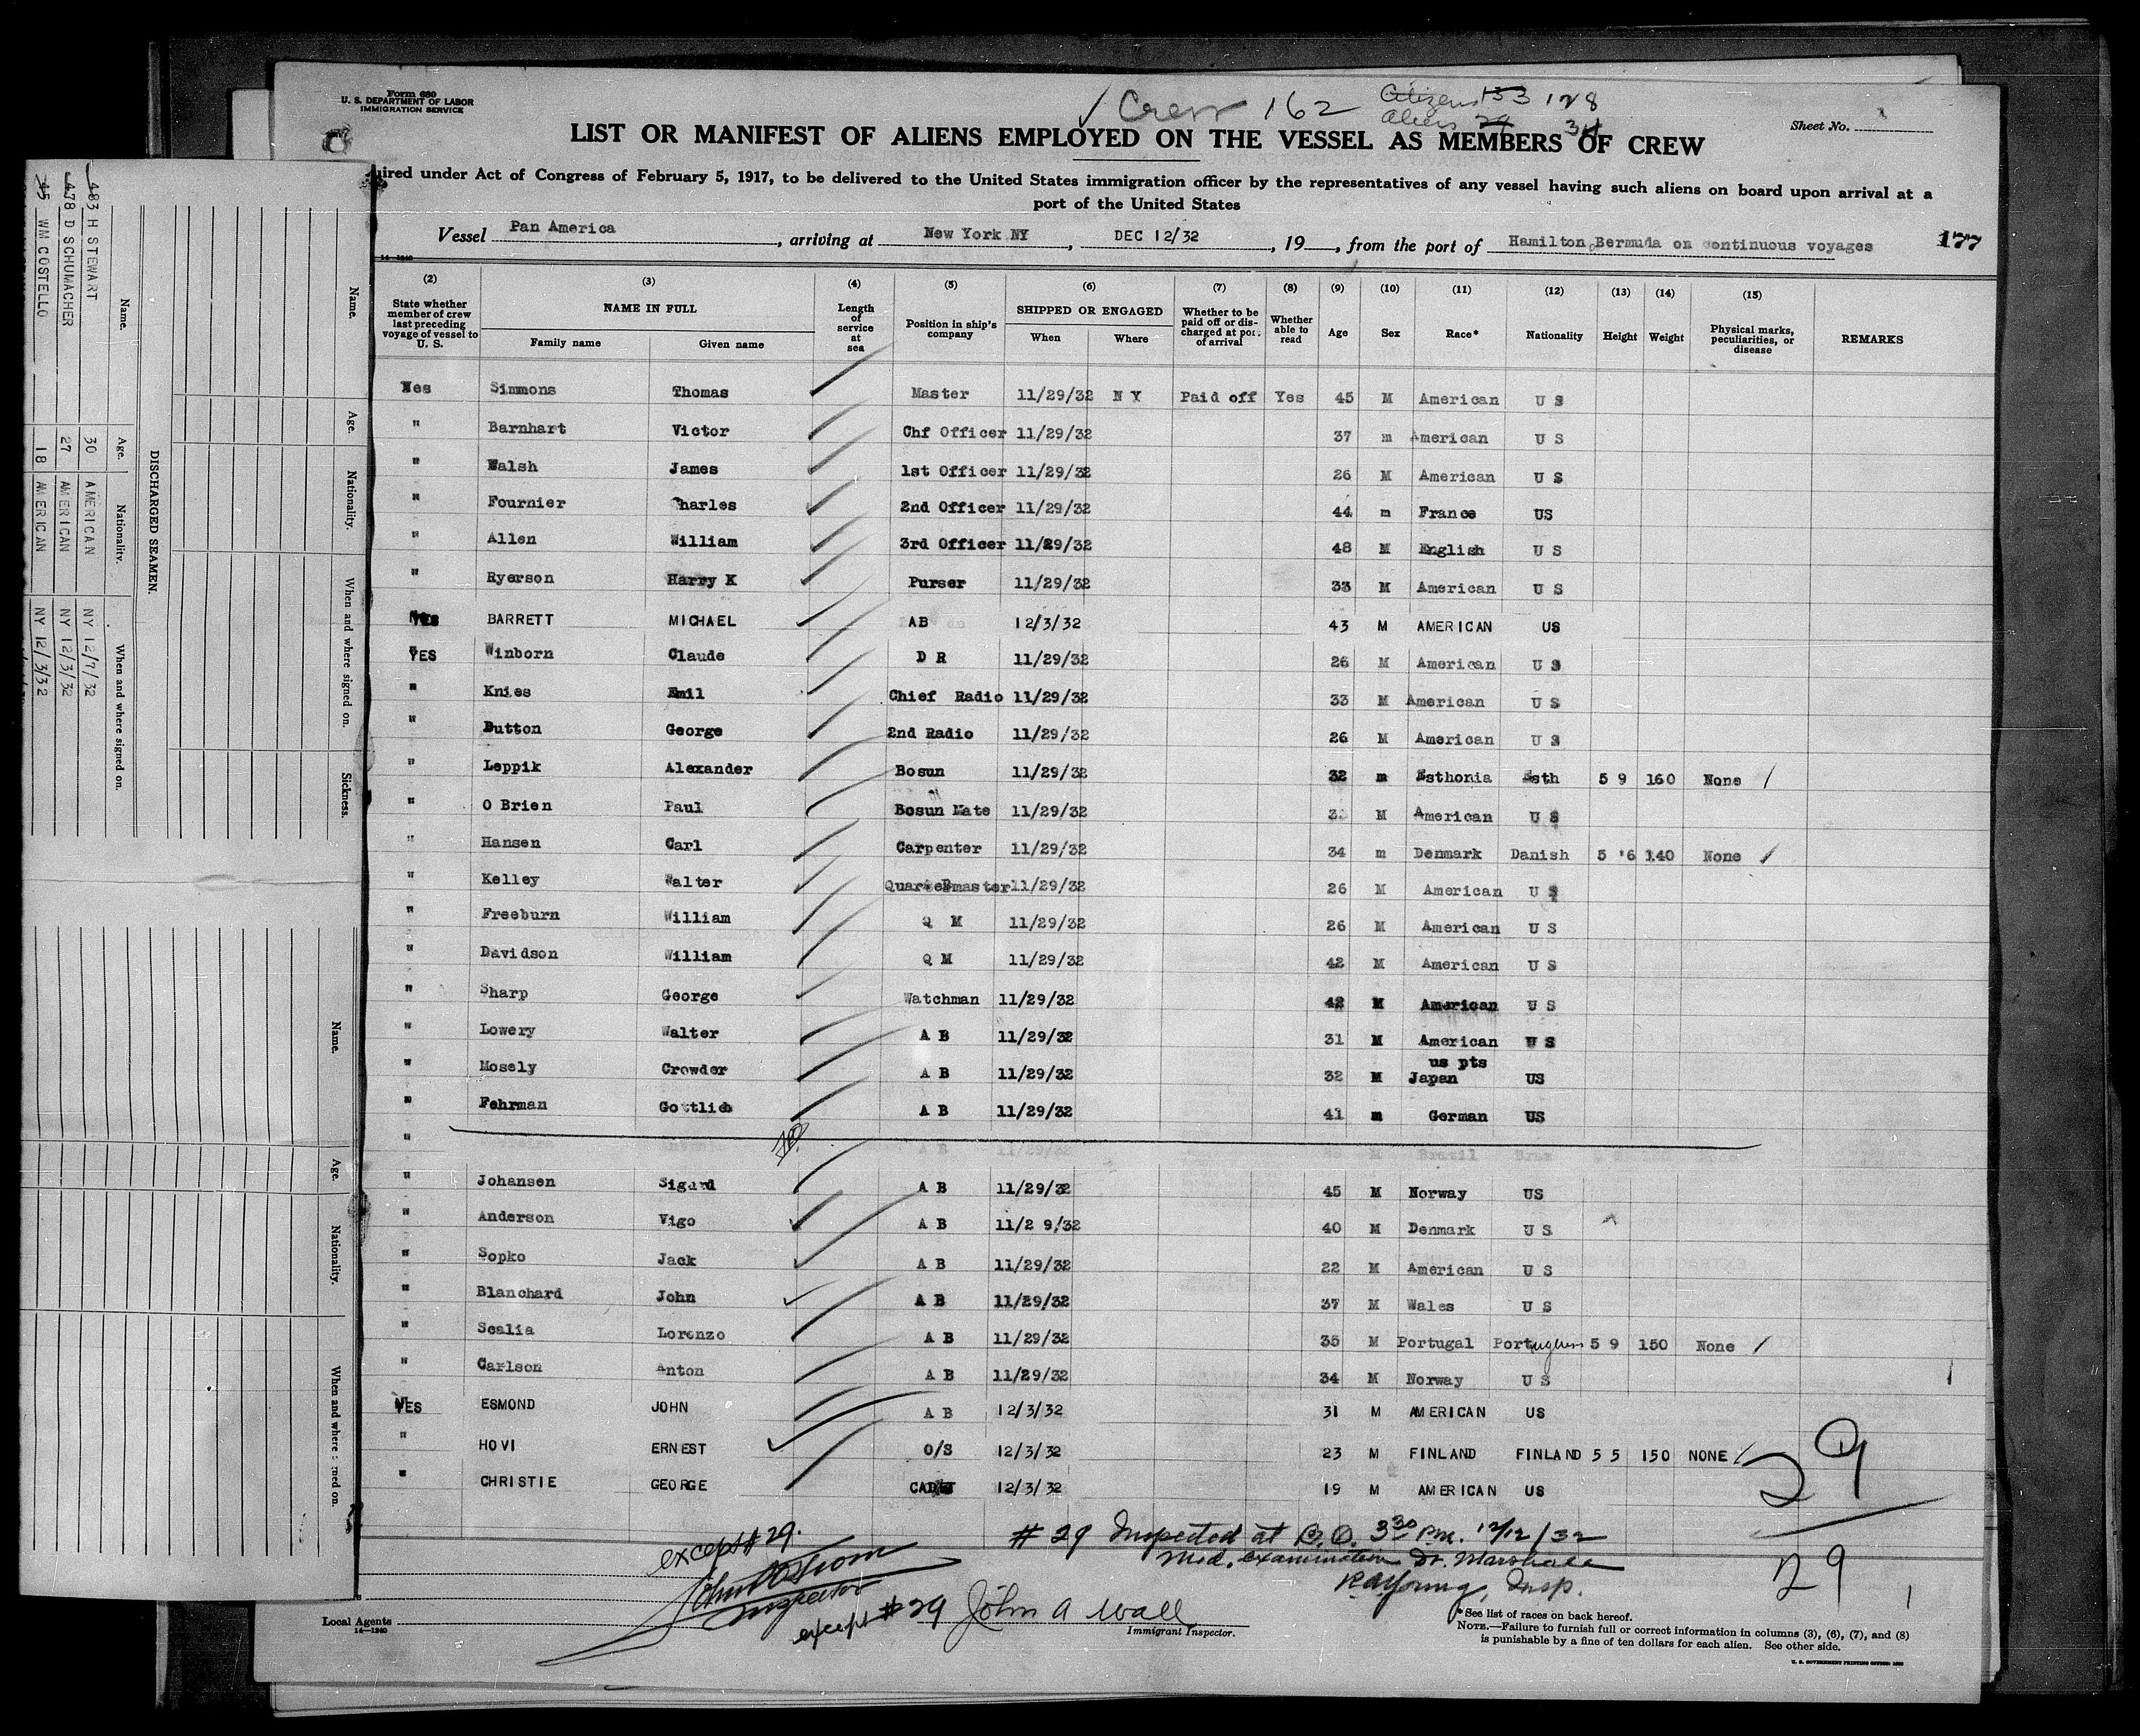 Form 680
U. S. DEPARTMENT OF LABOR
IMMIGRATION SERVICE
Crew 162 Citizens 153 128
Aliens 29 34
Sheet No.
LIST OR MANIFEST OF ALIENS EMPLOYED ON THE VESSEL AS MEMBERS OF CREW
uired under Act of Congress of February 5, 1917, to be delivered to the United States immigration officer by the representatives of any vessel having such aliens on board upon arrival at a
port of the United States
Vessel Pan America, arriving at New York NY, DEC 12/32, 19, from the port of Hamilton, Bermuda on continuous voyages 177
14—1240
(2) (3) (4) (5) (6) (7) (8) (9) (10) (11) (12) (13) (14) (15)
State whether member of crew last preceding voyage of vessel to U. S. NAME IN FULL Family name Given name Length of service at sea Position in ship's company SHIPPED OR ENGAGED When Where Whether to be paid off or discharged at port of arrival Whether able to read Age Sex Race* Nationality Height Weight Physical marks, peculiarities, or disease REMARKS
Yes Simmons Thomas Master 11/29/32 N Y Paid off Yes 45 M American U S
" Barnhart Victor Chf Officer 11/29/32 37 m American U S
" Walsh James 1st Officer 11/29/32 26 M American U S
" Fournier Charles 2nd Officer 11/29/32 44 m France US
" Allen William 3rd Officer 11/29/32 48 M English U S
" Ryerson Harry K Purser 11/29/32 33 M American U S
YES BARRETT MICHAEL AB 12/3/32 43 M AMERICAN US
YES Winborn Claude D R 11/29/32 26 M American U S
" Knies Emil Chief Radio 11/29/32 33 M American U S
" Dutton George 2nd Radio 11/29/32 26 M American U S
" Leppik Alexander Bosun 11/29/32 32 m Esthonia Esth 5 9 160 None /
" O Brien Paul Bosun Mate 11/29/32 M American U S
" Hansen Carl Carpenter 11/29/32 34 m Denmark Danish 5 '6 140 None /
" Kelley Walter Quartermaster 11/29/32 26 M American U S
" Freeburn William Q M 11/29/32 26 M American U S
" Davidson William Q M 11/29/32 42 M American U S
" Sharp George Watchman 11/29/32 42 M American U S
" Lowery Walter A B 11/29/32 31 M American U S
us pts
" Mosely Crowder A B 11/29/32 32 M Japan US
" Fehrman Gottlieb A B 11/29/32 41 m German US
" A B 11/29/32 M Brazil Braz
" Johansen Sigurd A B 11/29/32 45 M Norway US
" Anderson Vigo A B 11/2 9/32 40 M Denmark U S
" Sopko Jack A B 11/29/32 22 M American U S
" Blanchard John A B 11/29/32 37 M Wales U S
" Scalia Lorenzo A B 11/29/32 35 M Portugal Portughese 5 9 150 None /
" Carlson Anton A B 11/29/32 34 M Norway U S
YES ESMOND JOHN A B 12/3/32 31 M AMERICAN US
" HOVI ERNEST O/S 12/3/32 23 M FINLAND FINLAND 5 5 150 NONE /
" CHRISTIE GEORGE CADET 12/3/32 19 M AMERICAN US
29
29
except #29.
Inspector
# 29 Inspected at B.O. 3 30 P.M. 12/12/32
Med. examination Dr. Marshall
R A Young, Insp.
except #29 John A Wall
Immigrant Inspector.
Local Agents
14—1240
* See list of races on back hereof.
NOTE.—Failure to furnish full or correct information in columns (3), (6), (7), and (8)
is punishable by a fine of ten dollars for each alien. See other side.
U. S. GOVERNMENT PRINTING OFFICE
DISCHARGED SEAMEN.
Name. Age. Nationality. When and where signed on.
483 H STEWART 30 AMERICAN NY 12/7/32
478 D SCHUMACHER 27 AMERICAN NY 12/3/32
45 WM COSTELLO 18 AMERICAN NY 12/3/32
Name. Age. Nationality. When and where signed on. Sickness.
Name. Age. Nationality. When and where signed on.